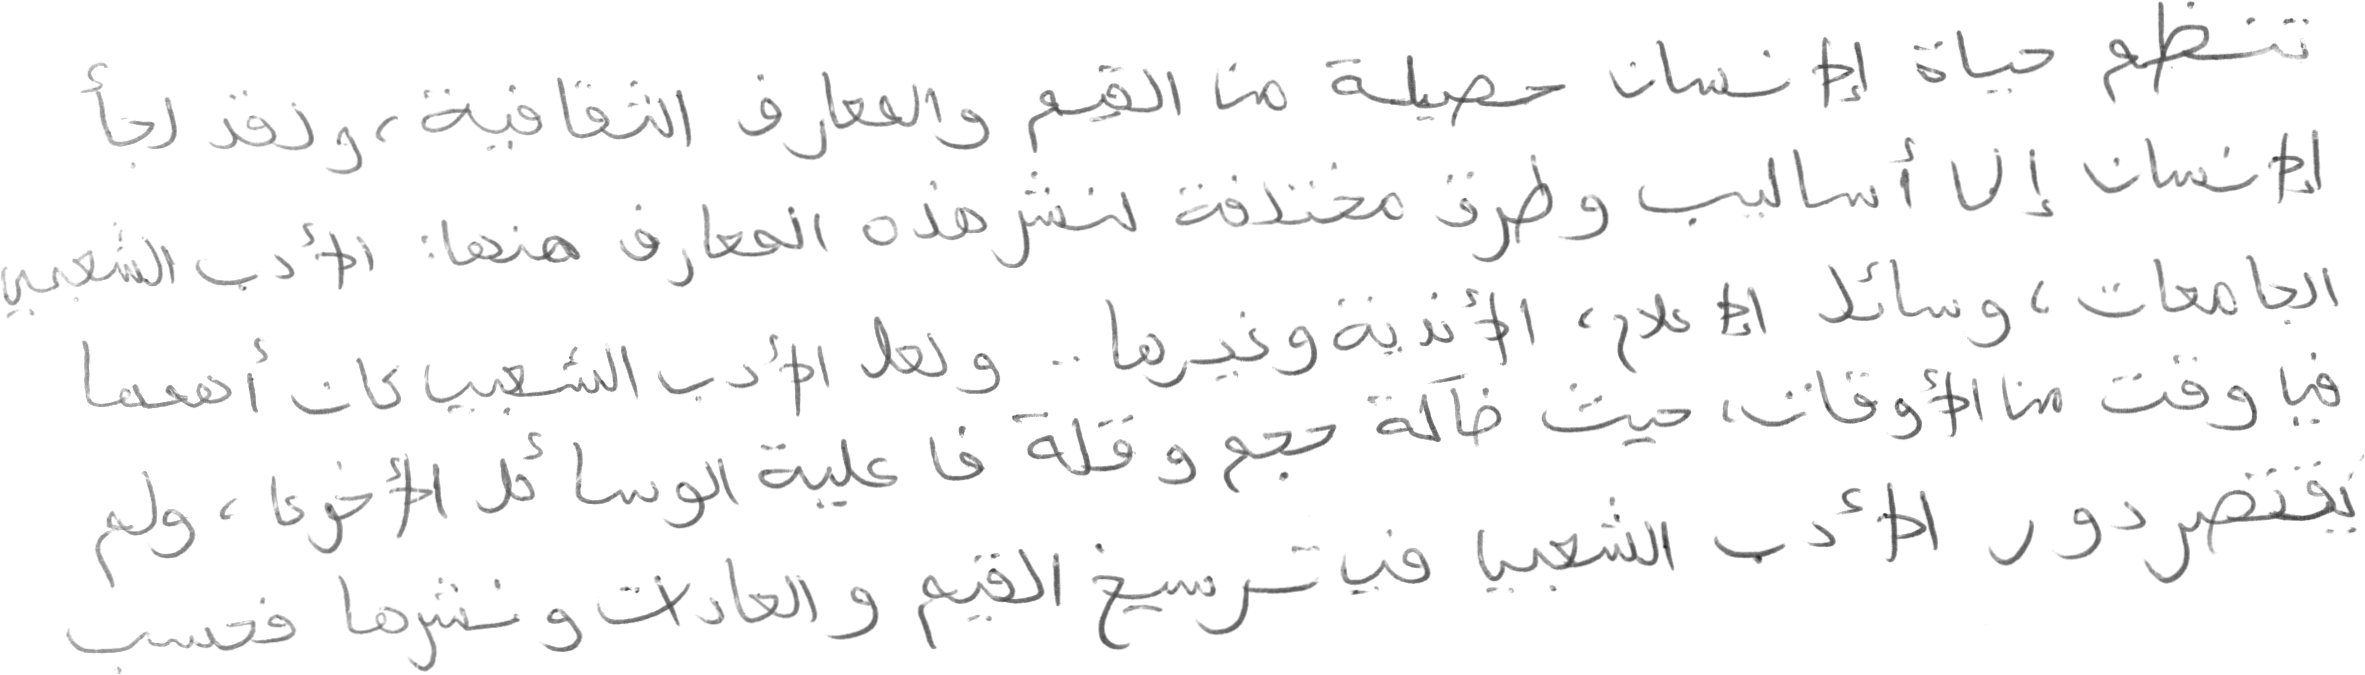 تنظم حياة الإنسان حصيلة من القيم والمعارف الثقافية، ولقد لجأ
الإنسان إلى أساليب وطرق مختلفة لنشر هذه المعارف منها: الأدب الشعبي
الجامعات، وسائل الإعلام، الأندية وغيرها.. ولعل الأدب الشعبي كان أهمها
في وقت من الأوقات، حيث ضآلة حجم وقلة فاعلية الوسائل الأخرى، ولم
يقتصر دور الأدب الشعبي في ترسيخ القيم والعادات ونشرها فحسب